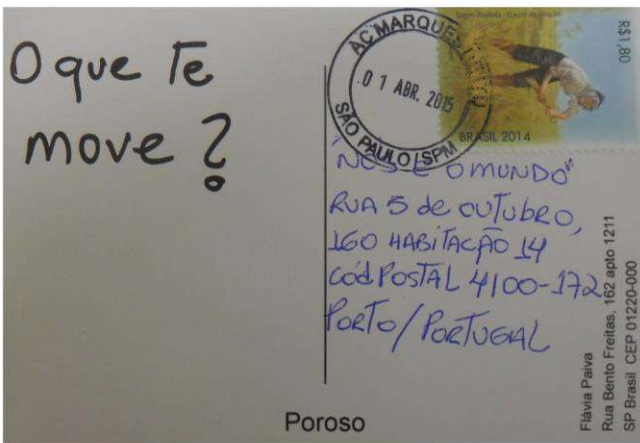 O que te
move ?
R$1,80
BRASIL 2014
AC MARQUES
01 ABR. 2015
SÃO PAULO/SPM
"NÓS E O MUNDO"
RUA 5 de OUTUBRO,
160 HABITAÇÃO 14
CÓd POSTAL 4100-172
PORTO/PORTUGAL
Poroso
Flávia Paiva
Rua Bento Freitas, 162 apto 1211
SP Brasil CEP 01220-000